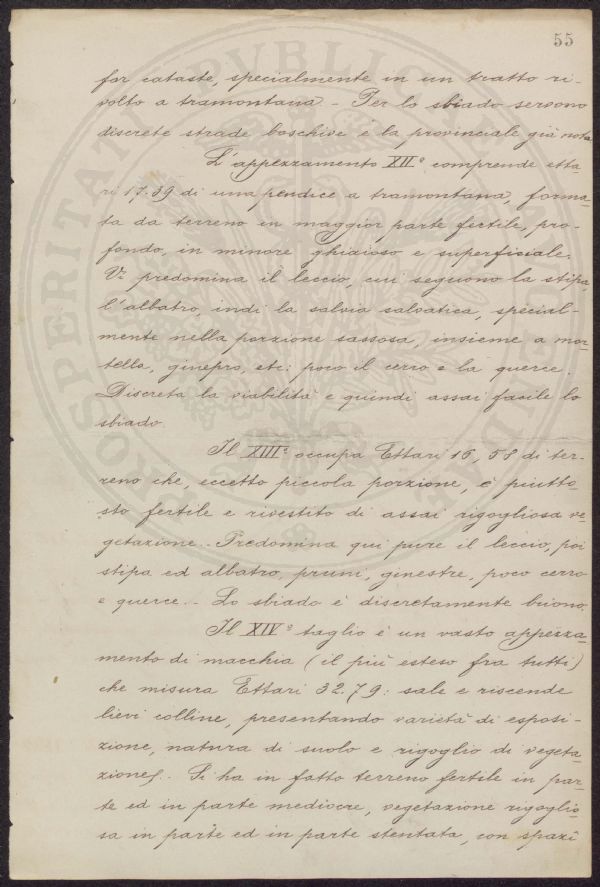 55
far cataste, specialmente in un tratto ri-
volto a tramontana. - Per lo sbiado servono
discrete strade boschive e la provinciale già nota
L'appezzamento XII° comprende etta-
ri 17.39 di una pendice a tramontana, forma-
ta da terreno in maggior parte fertile, pro-
fondo, in minore ghiaioso e superficiale.
Vi predomina il leccio, cui seguono la stipa,
l'albatro, indi la salvia salvatica, special-
mente nella porzione sassosa, insieme a mor-
tella, ginepro, etc: poco il cerro e la querce.
Discreta la viabilità e quindi assai facile lo
sbiado.
Il XIII° occupa Ettari 16,58 di ter-
reno che, eccetto piccola porzione, è piutto
sto fertile e rivestito di assai rigogliosa ve-
getazione. - Predomina qui pure il leccio, poi
stipa ed albatro, pruni, ginestre, poco cerro
e querce. - Lo sbiado è discretamente buono.
Il XIV° taglio è un vasto appezza-
mento di macchia (il più esteso fra tutti)
che misura Ettari 32.79: sale e riscende
lievi colline, presentando varietà di esposi-
zione, natura di suolo e rigoglio di vegeta-
zione. - Si ha in fatto terreno fertile in par-
te ed in parte mediocre, vegetazione rigoglio-
sa in parte ed in parte stentata, con spazî